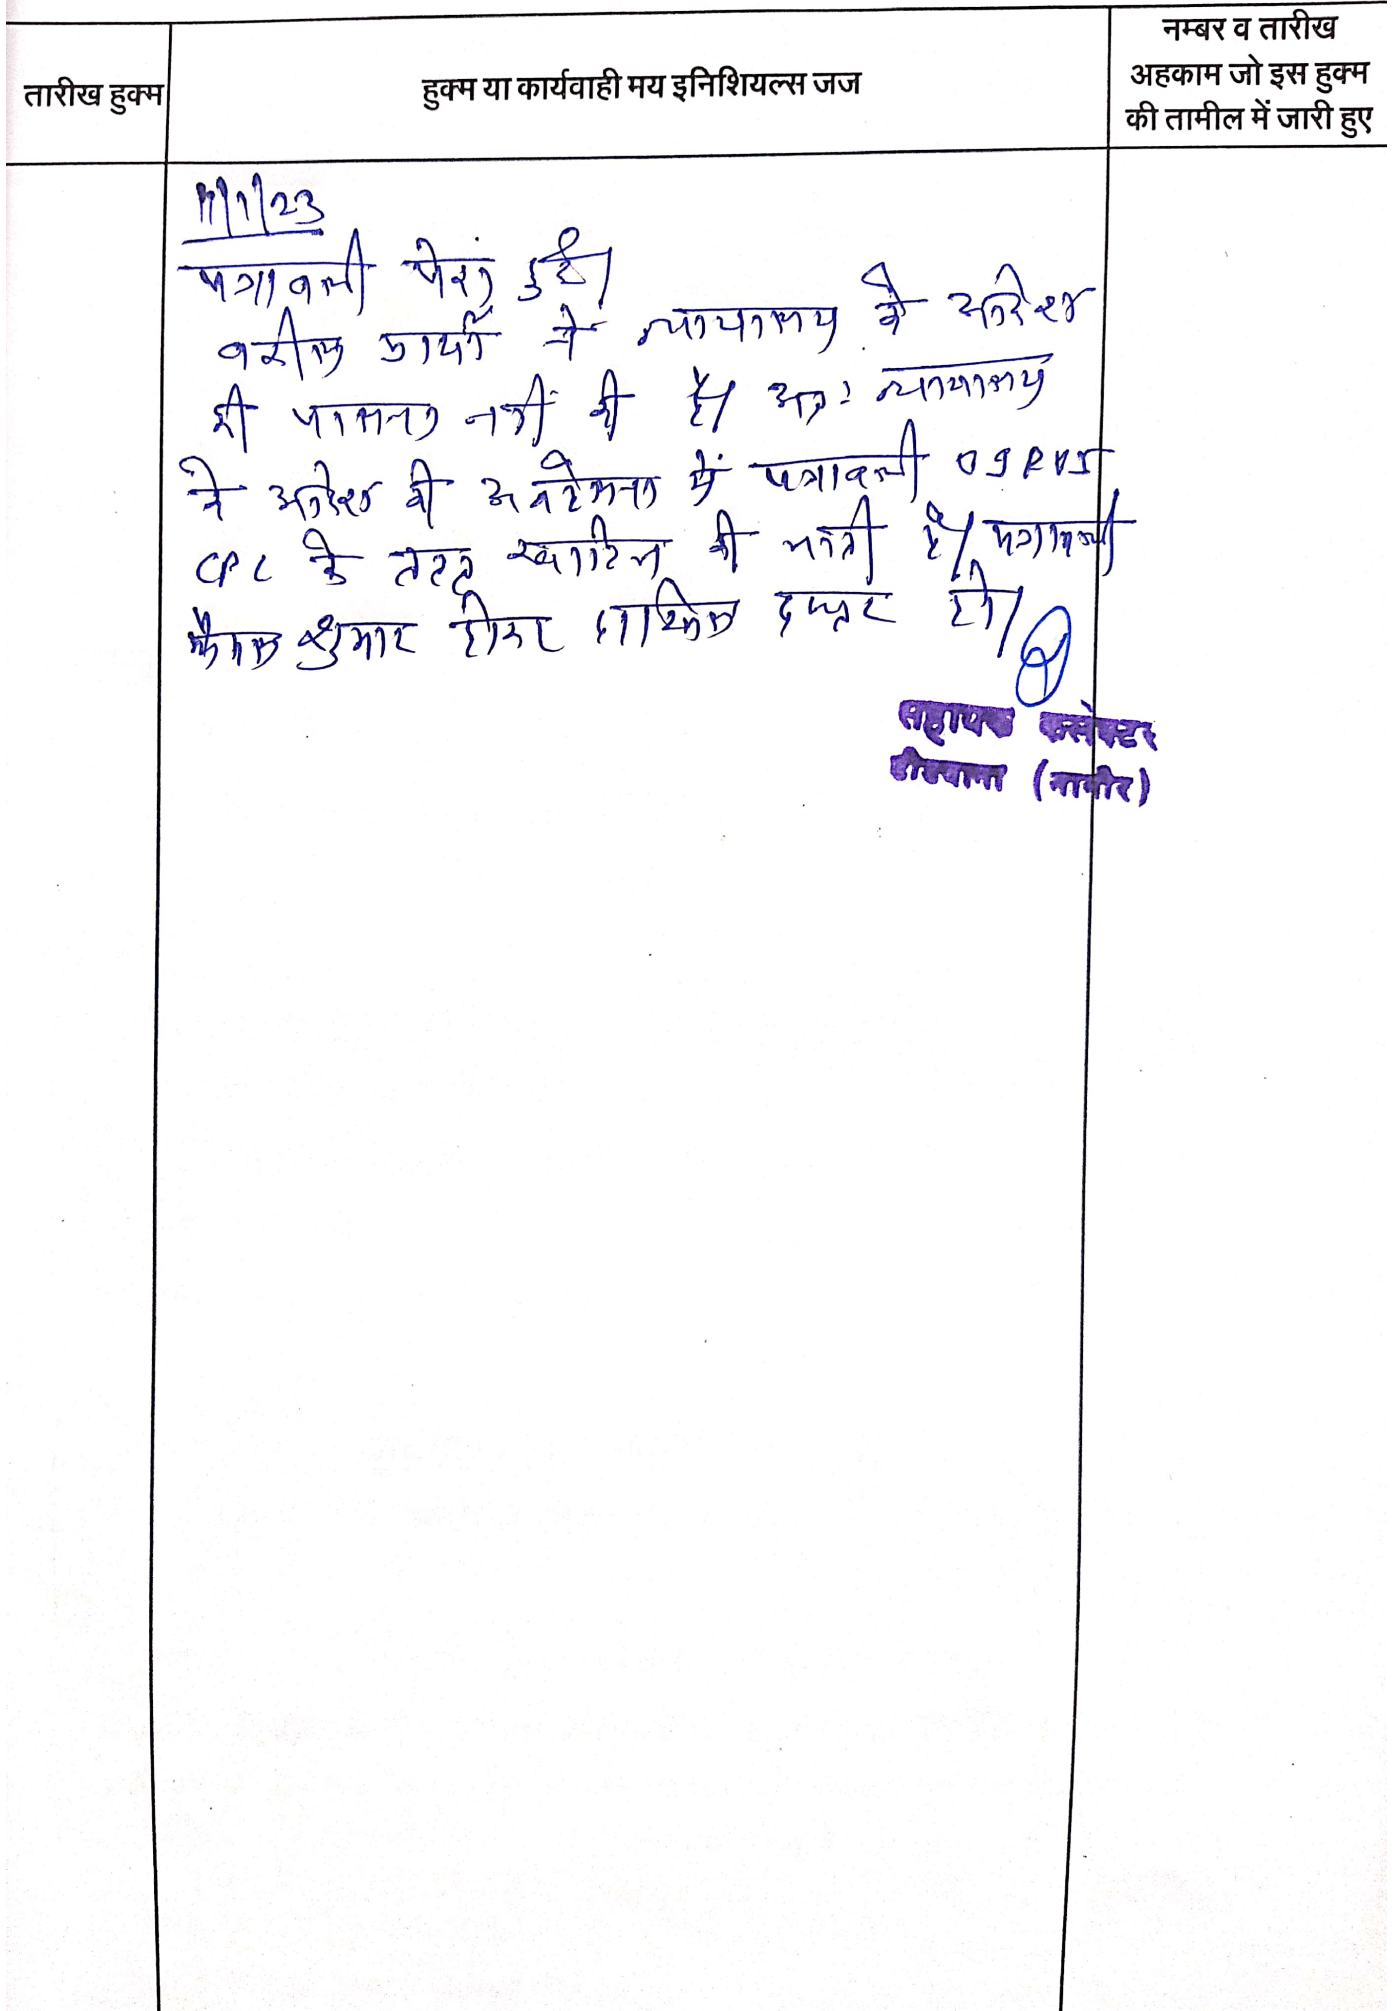 तारीख हुक्म
हुक्म या कार्यवाही मय इनिशियल्स जज
नम्बर व तारीख
अहकाम जो इस हुक्म
की तामील में जारी हुए
11/1/23
पत्रावली पेश हुई।
वकील प्रार्थी ने न्यायालय के आदेश
की पालना नहीं की है। अतः न्यायालय
के आदेश की अवहेलना में पत्रावली O 9 R
CPC के तहत खारिज की जाती है। पत्रावली
फैसल शुमार होकर दाखिल दफ्तर हो।
सहायक कलेक्टर
डीडवाना (नागौर)